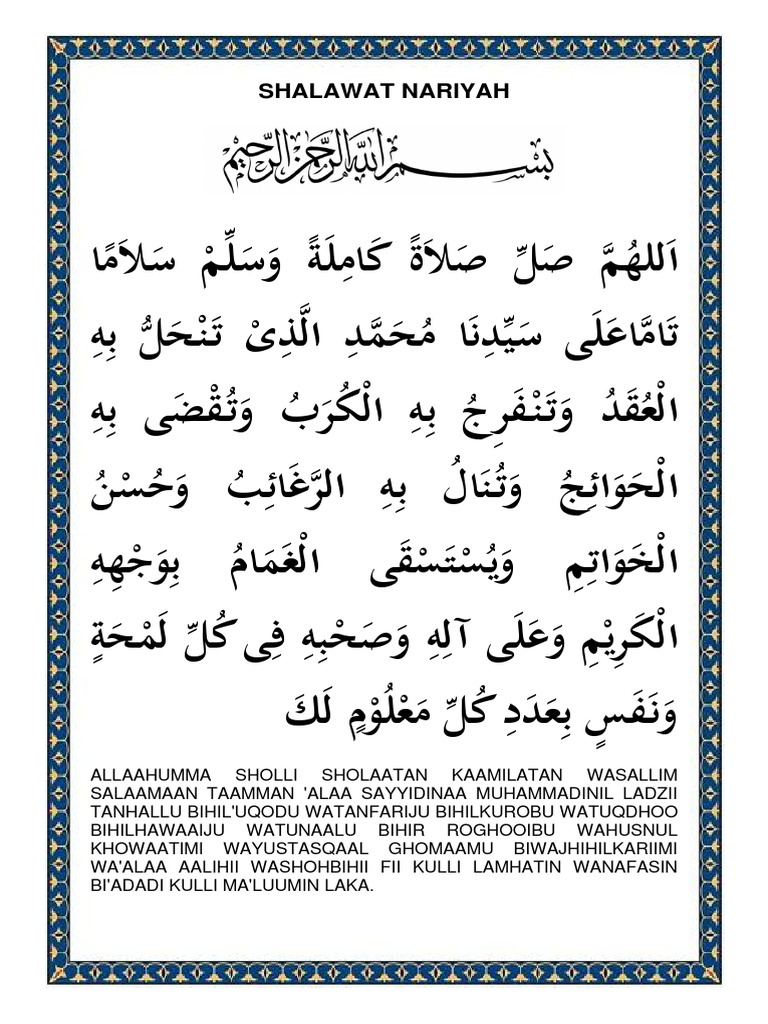 SHALAWAT NARIYAH
بسم الله الرحمن الرحيم
اَللهُمَّ صَلِّ صَلاَةً كَامِلَةً وَسَلِّمْ سَلاَمًا
تَامًّاعَلَى سَيِّدِنَا مُحَمَّدِ الَّذِىْ تَنْحَلُّ بِهِ
الْعُقَدُ وَتَنْفَرِجُ بِهِ الْكُرَبُ وَتُقْضَى بِهِ
الْحَوَائِجُ وَتُنَالُ بِهِ الرَّغَائِبُ وَحُسْنُ
الْخَوَاتِمِ وَيُسْتَسْقَى الْغَمَامُ بِوَجْهِهِ
الْكَرِيْمِ وَعَلَى آلِهِ وَصَحْبِهِ فِى كُلِّ لَمْحَةٍ
وَنَفَسٍ بِعَدَدِ كُلِّ مَعْلُوْمٍ لَكَ
ALLAAHUMMA SHOLLI SHOLAATAN KAAMILATAN WASALLIM
SALAAMAAN TAAMMAN 'ALAA SAYYIDINAA MUHAMMADINIL LADZII
TANHALLU BIHIL'UQODU WATANFARIJU BIHILKUROBU WATUQDHOO
BIHILHAWAAIJU WATUNAALU BIHIR ROGHOOIBU WAHUSNUL
KHOWAATIMI WAYUSTASQAAL GHOMAAMU BIWAJHIHILKARIIMI
WA'ALAA AALIHII WASHOHBIHII FII KULLI LAMHATIN WANAFASIN
BI'ADADI KULLI MA'LUUMIN LAKA.